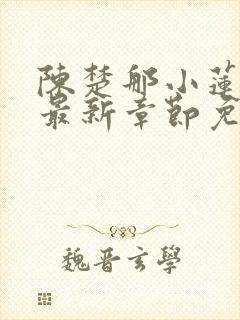 陳楚那小蓮
最新章節免
魏晉玄學